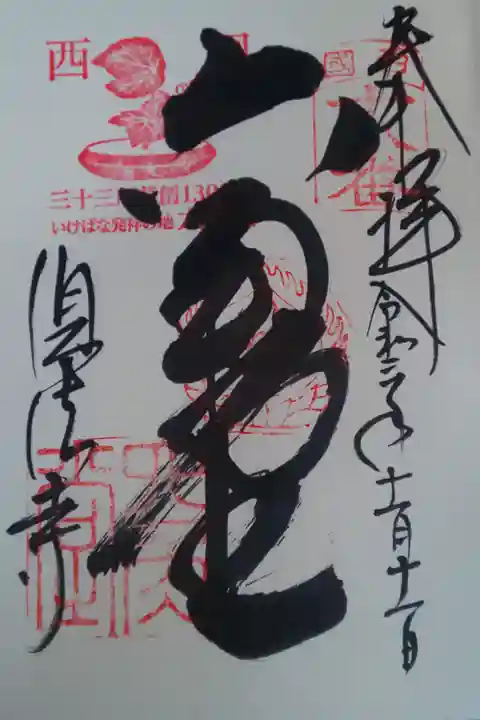 奉拝 令和二年十一月十一日
六角堂
頂法寺
西国
三十三所草創130
いけばな発祥の地